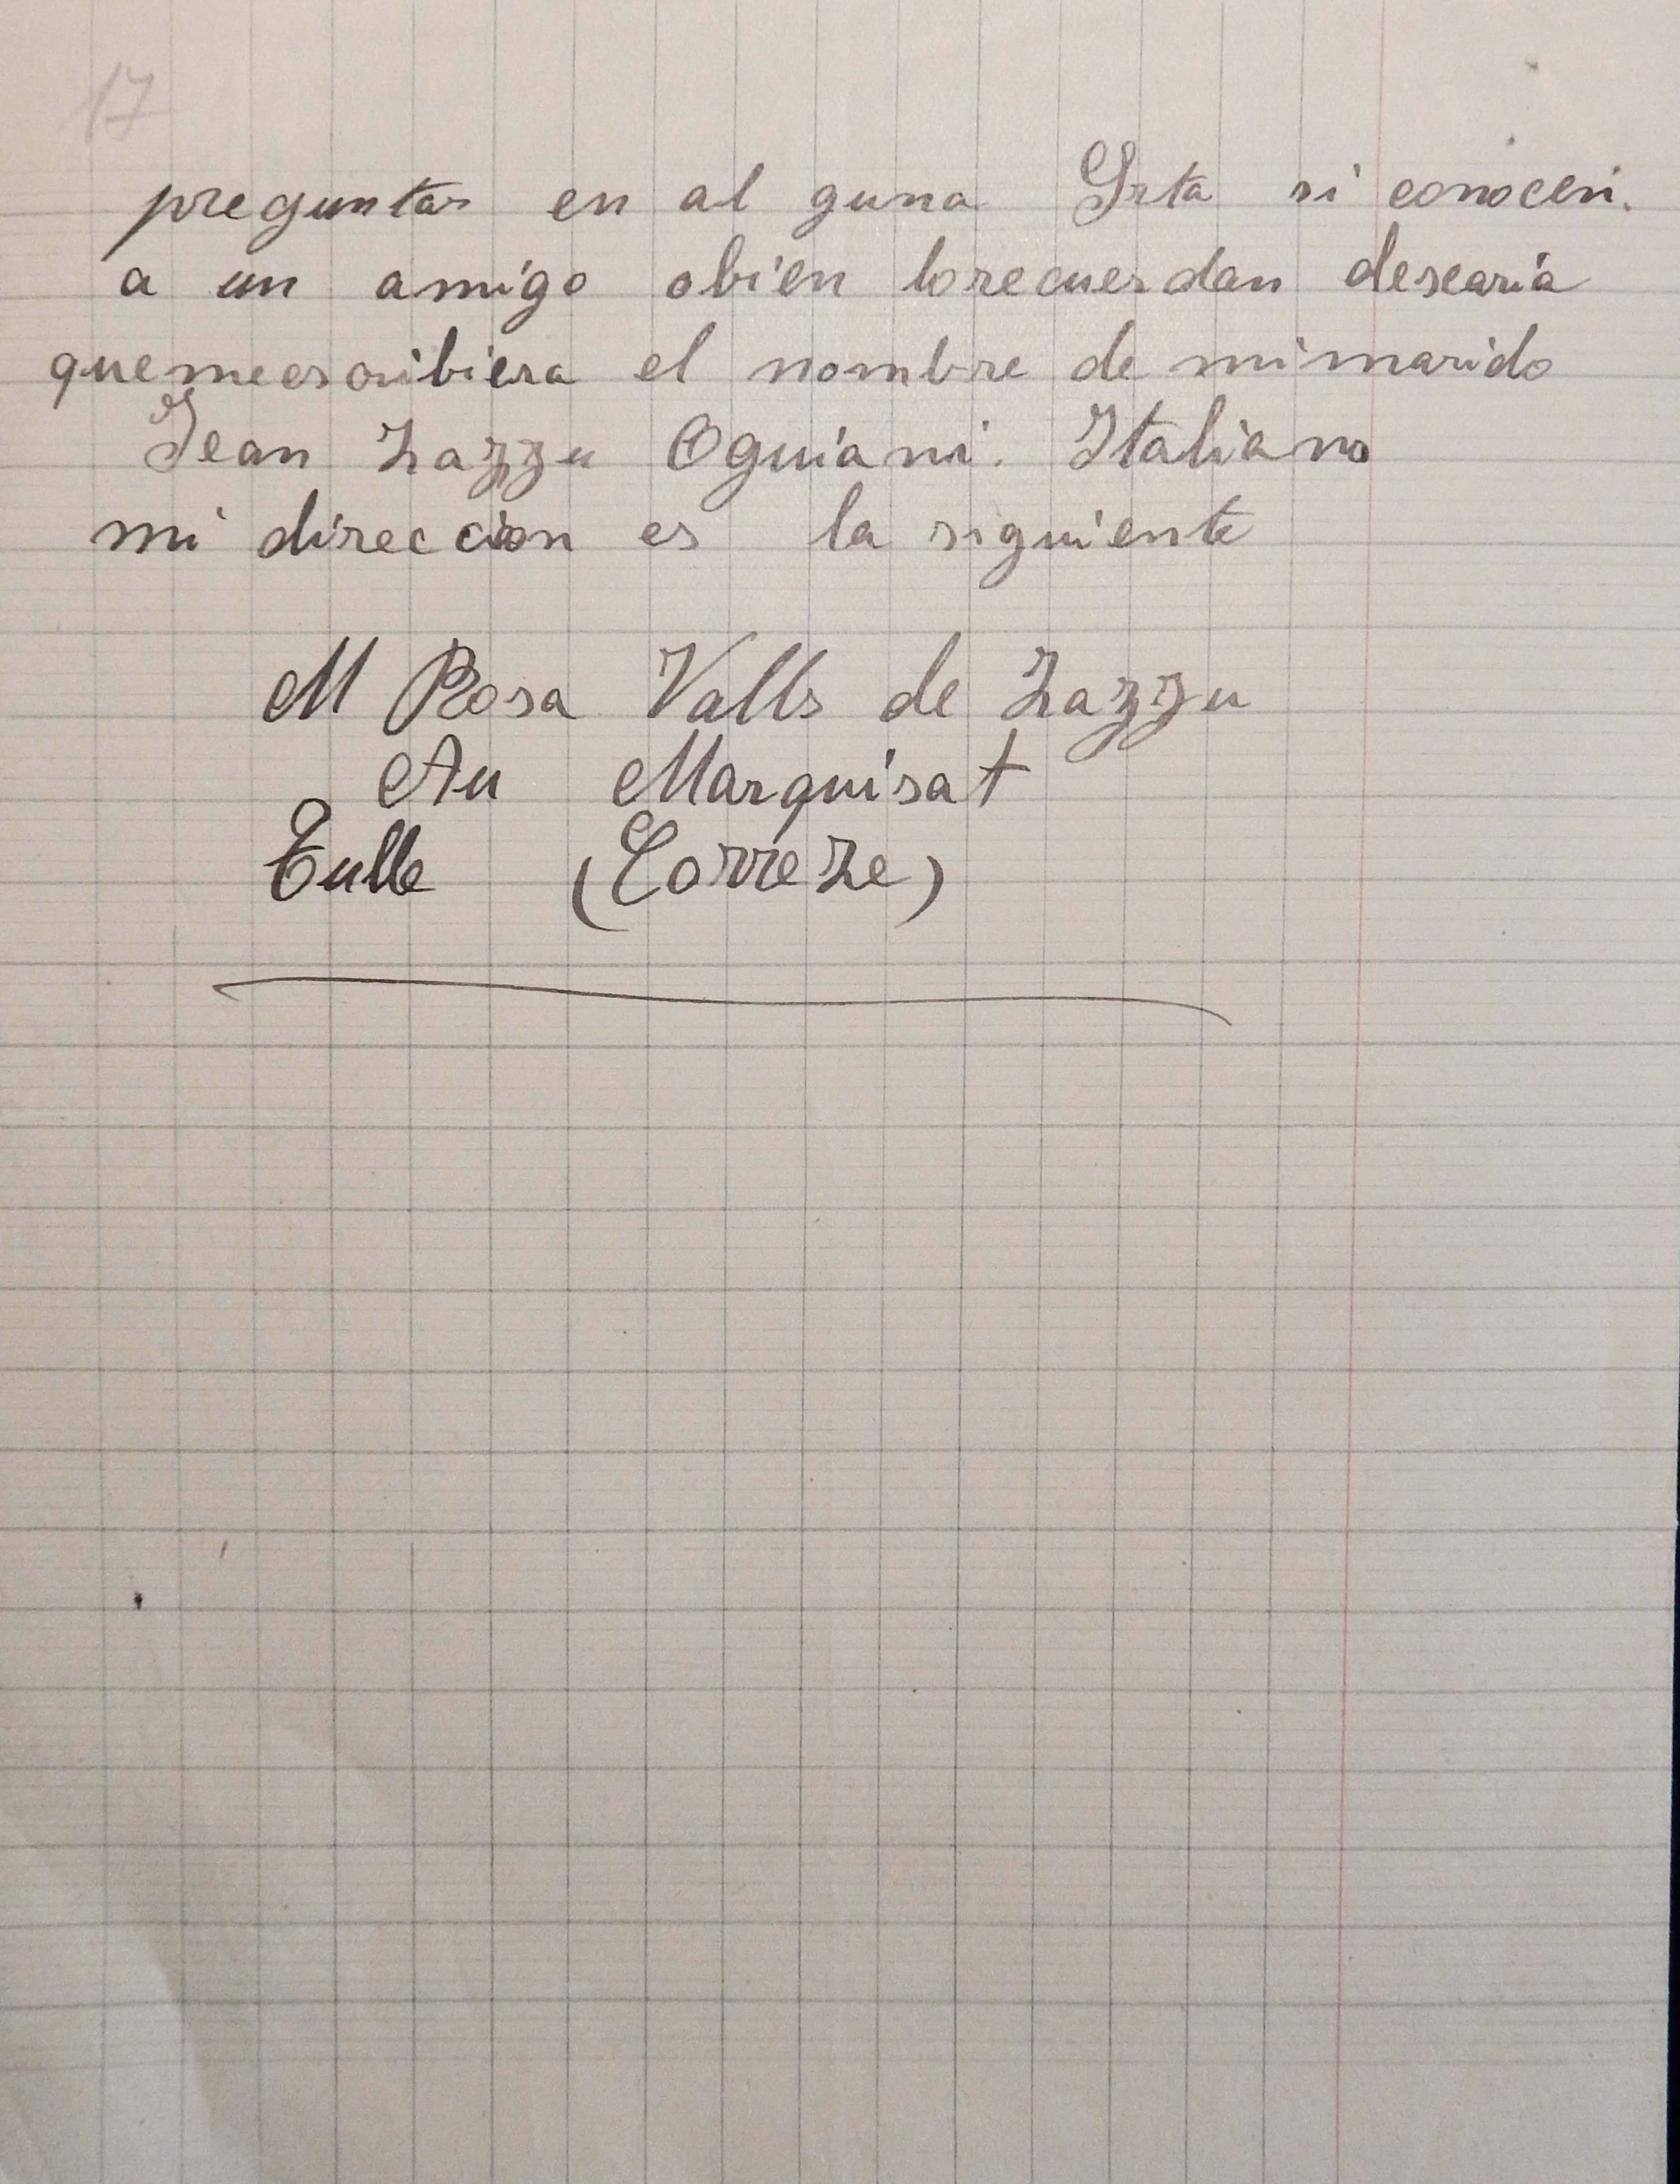 17
preguntar en al guna Srta si conocen.
a un amigo obien lorecuerdan desearia
quemeescribiera el nombre de mimarido
Jean Zazzu Oguiani. Italiano
mi direccion es la siguiente
M Rosa Valls de Zazzu
Au Marquisat
Tulle (Corréze)